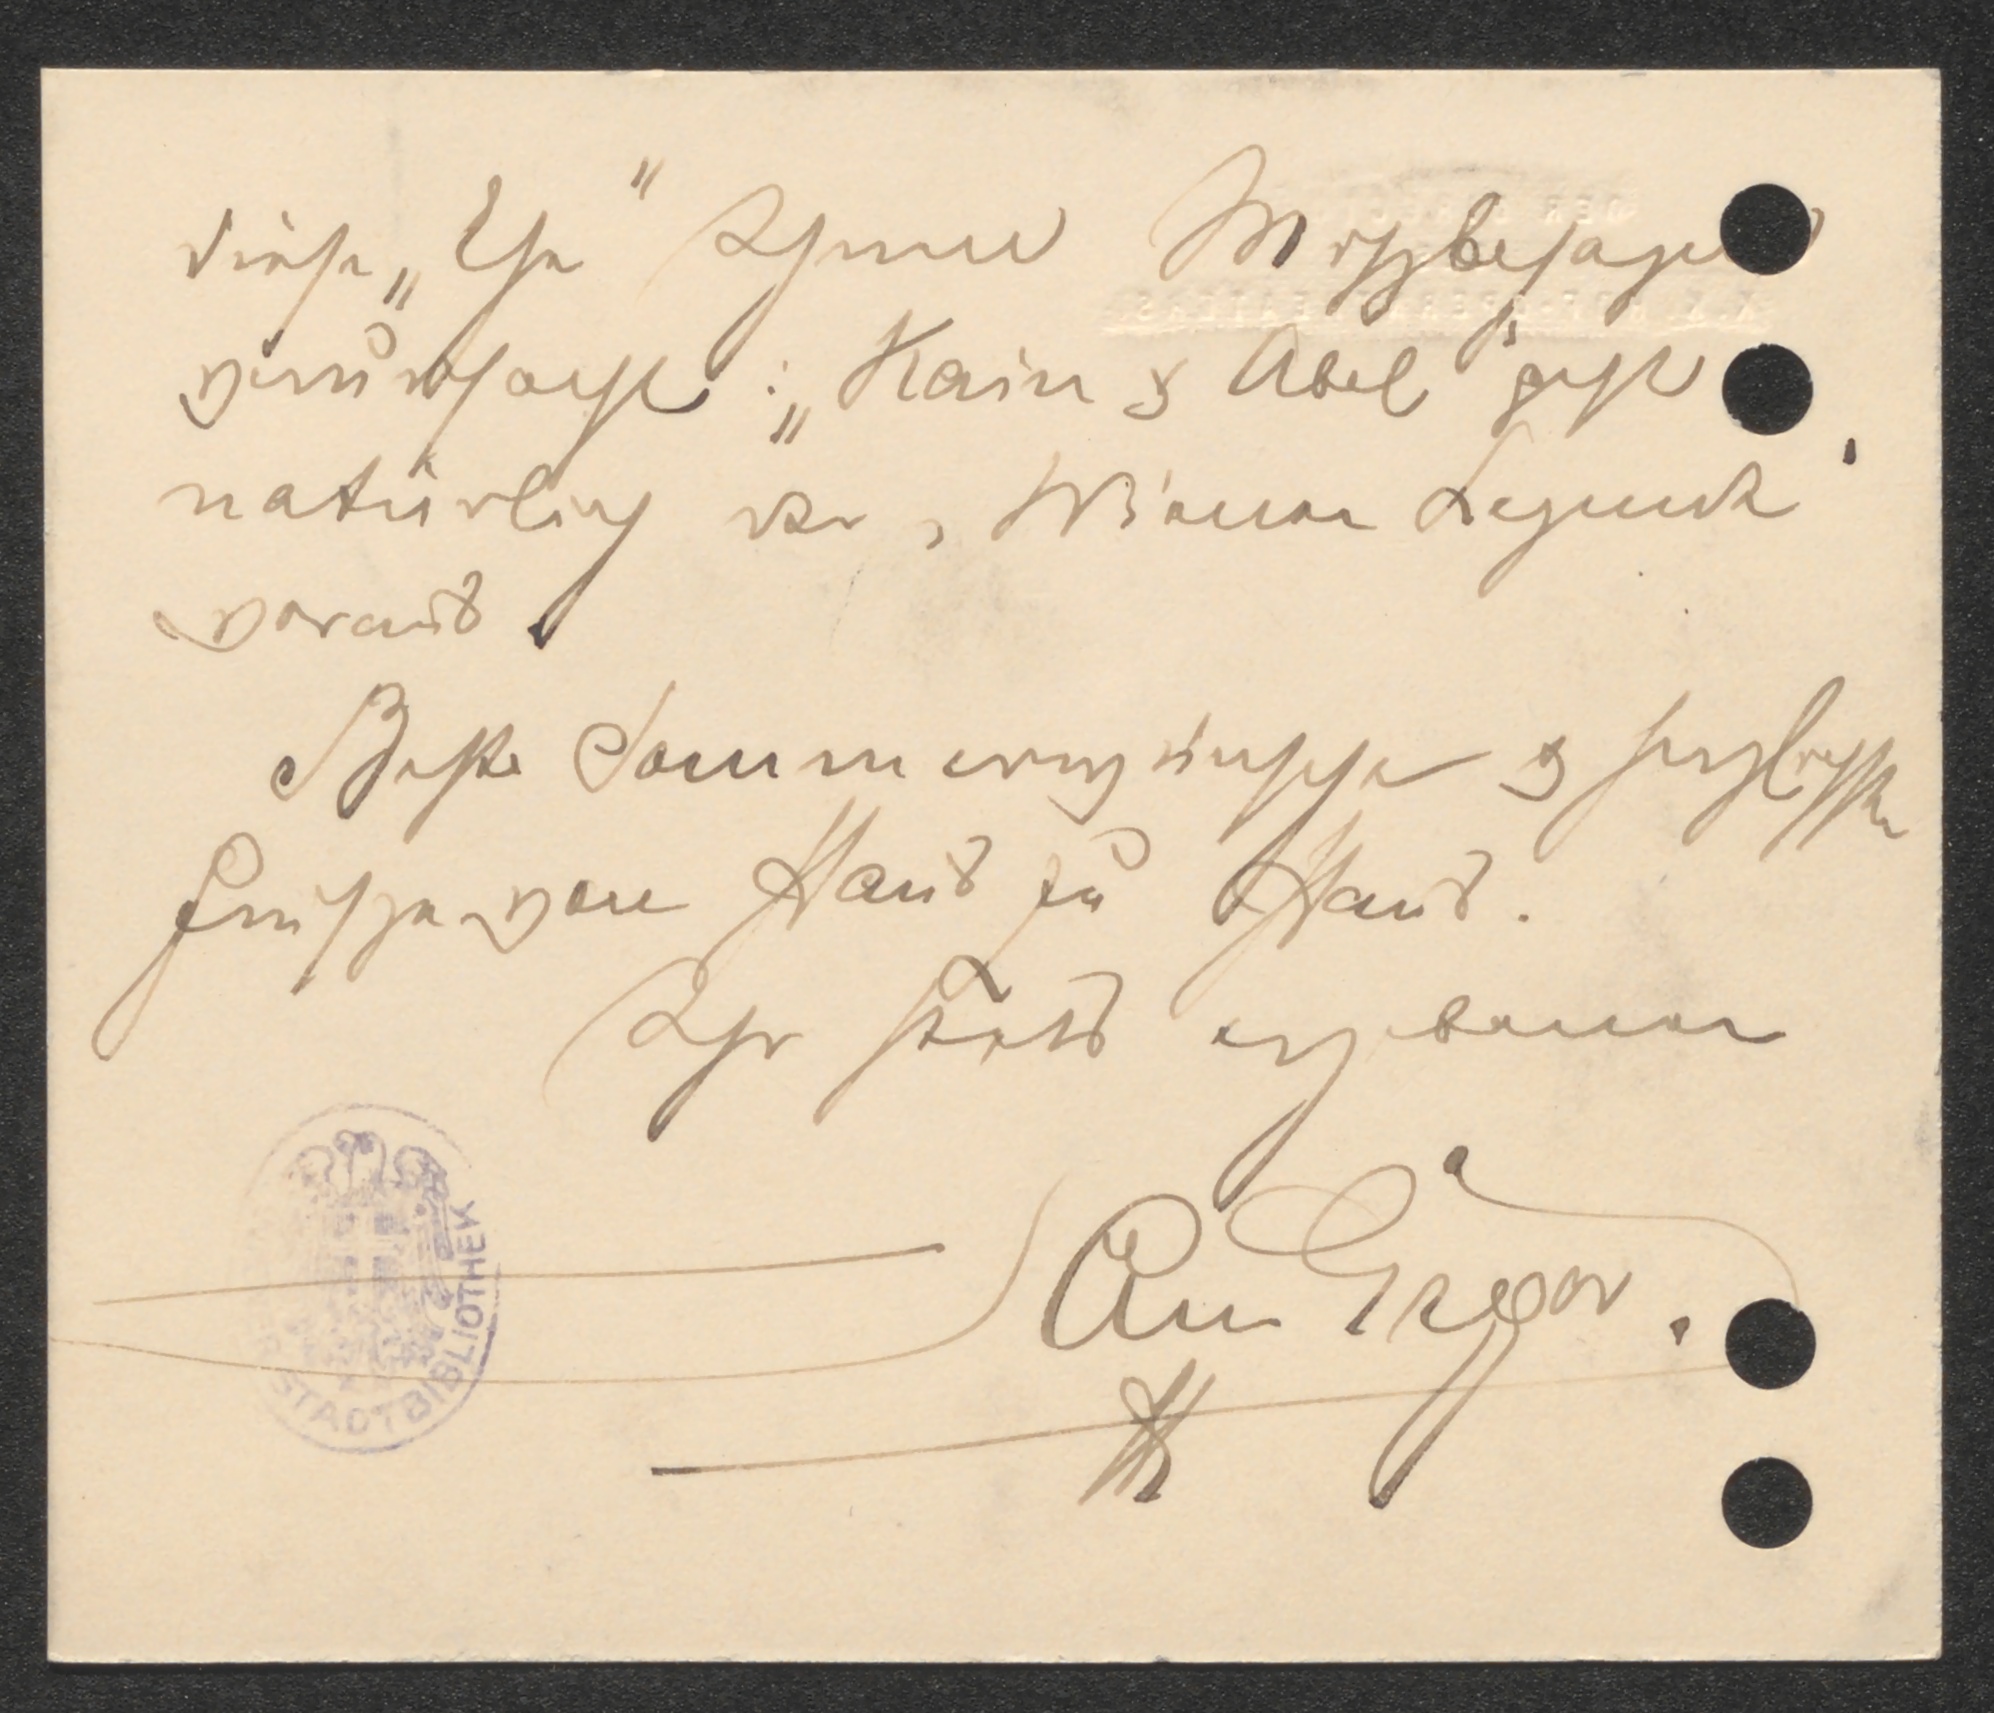 diese „Ehe“ Ihnen Mißbehagen
verursacht: „Kain & Abel“ geht
natürlich der „Wiener Legende“
voraus.
Beste Sommerwünsche & herzlichste
Grüße von Haus zu Haus.
Ihr stets ergebener
Gregor.
STADTBIBLIOTHEK